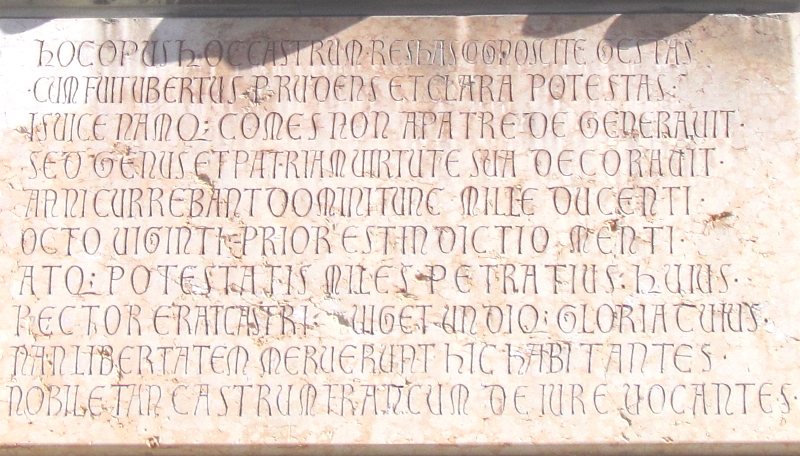 hOC OPUS hOC CASTRUM RES HAS COGNOSCITE GESTAS·
·CUM FUIT UBERTUS· PRUDENS ET CLARA POTESTAS·
ISUICE NAMQ: COMES NON A PATRE DEGENERAUIT·
SED GENUS ET PATRIAM UIRTUTE SUA DECORAUIT·
ANNI CURREBANT DOMINI TUNC MILLE DUCENTI·
OCTO UIGINTI· PRIOR EST INDICTIO MENTI·
ATQ: POTESTATIS MILES PETRATIUS· hUIUS·
RECTOR ERAT CASTRI UIGET UNDIQ: GLORIA CUIUS·
NAN LIBERTATEM MERUERUNT hIC hABITANTES·
NOBILE TAN CASTRUM FRANCUM DE IURE UOCANTES·